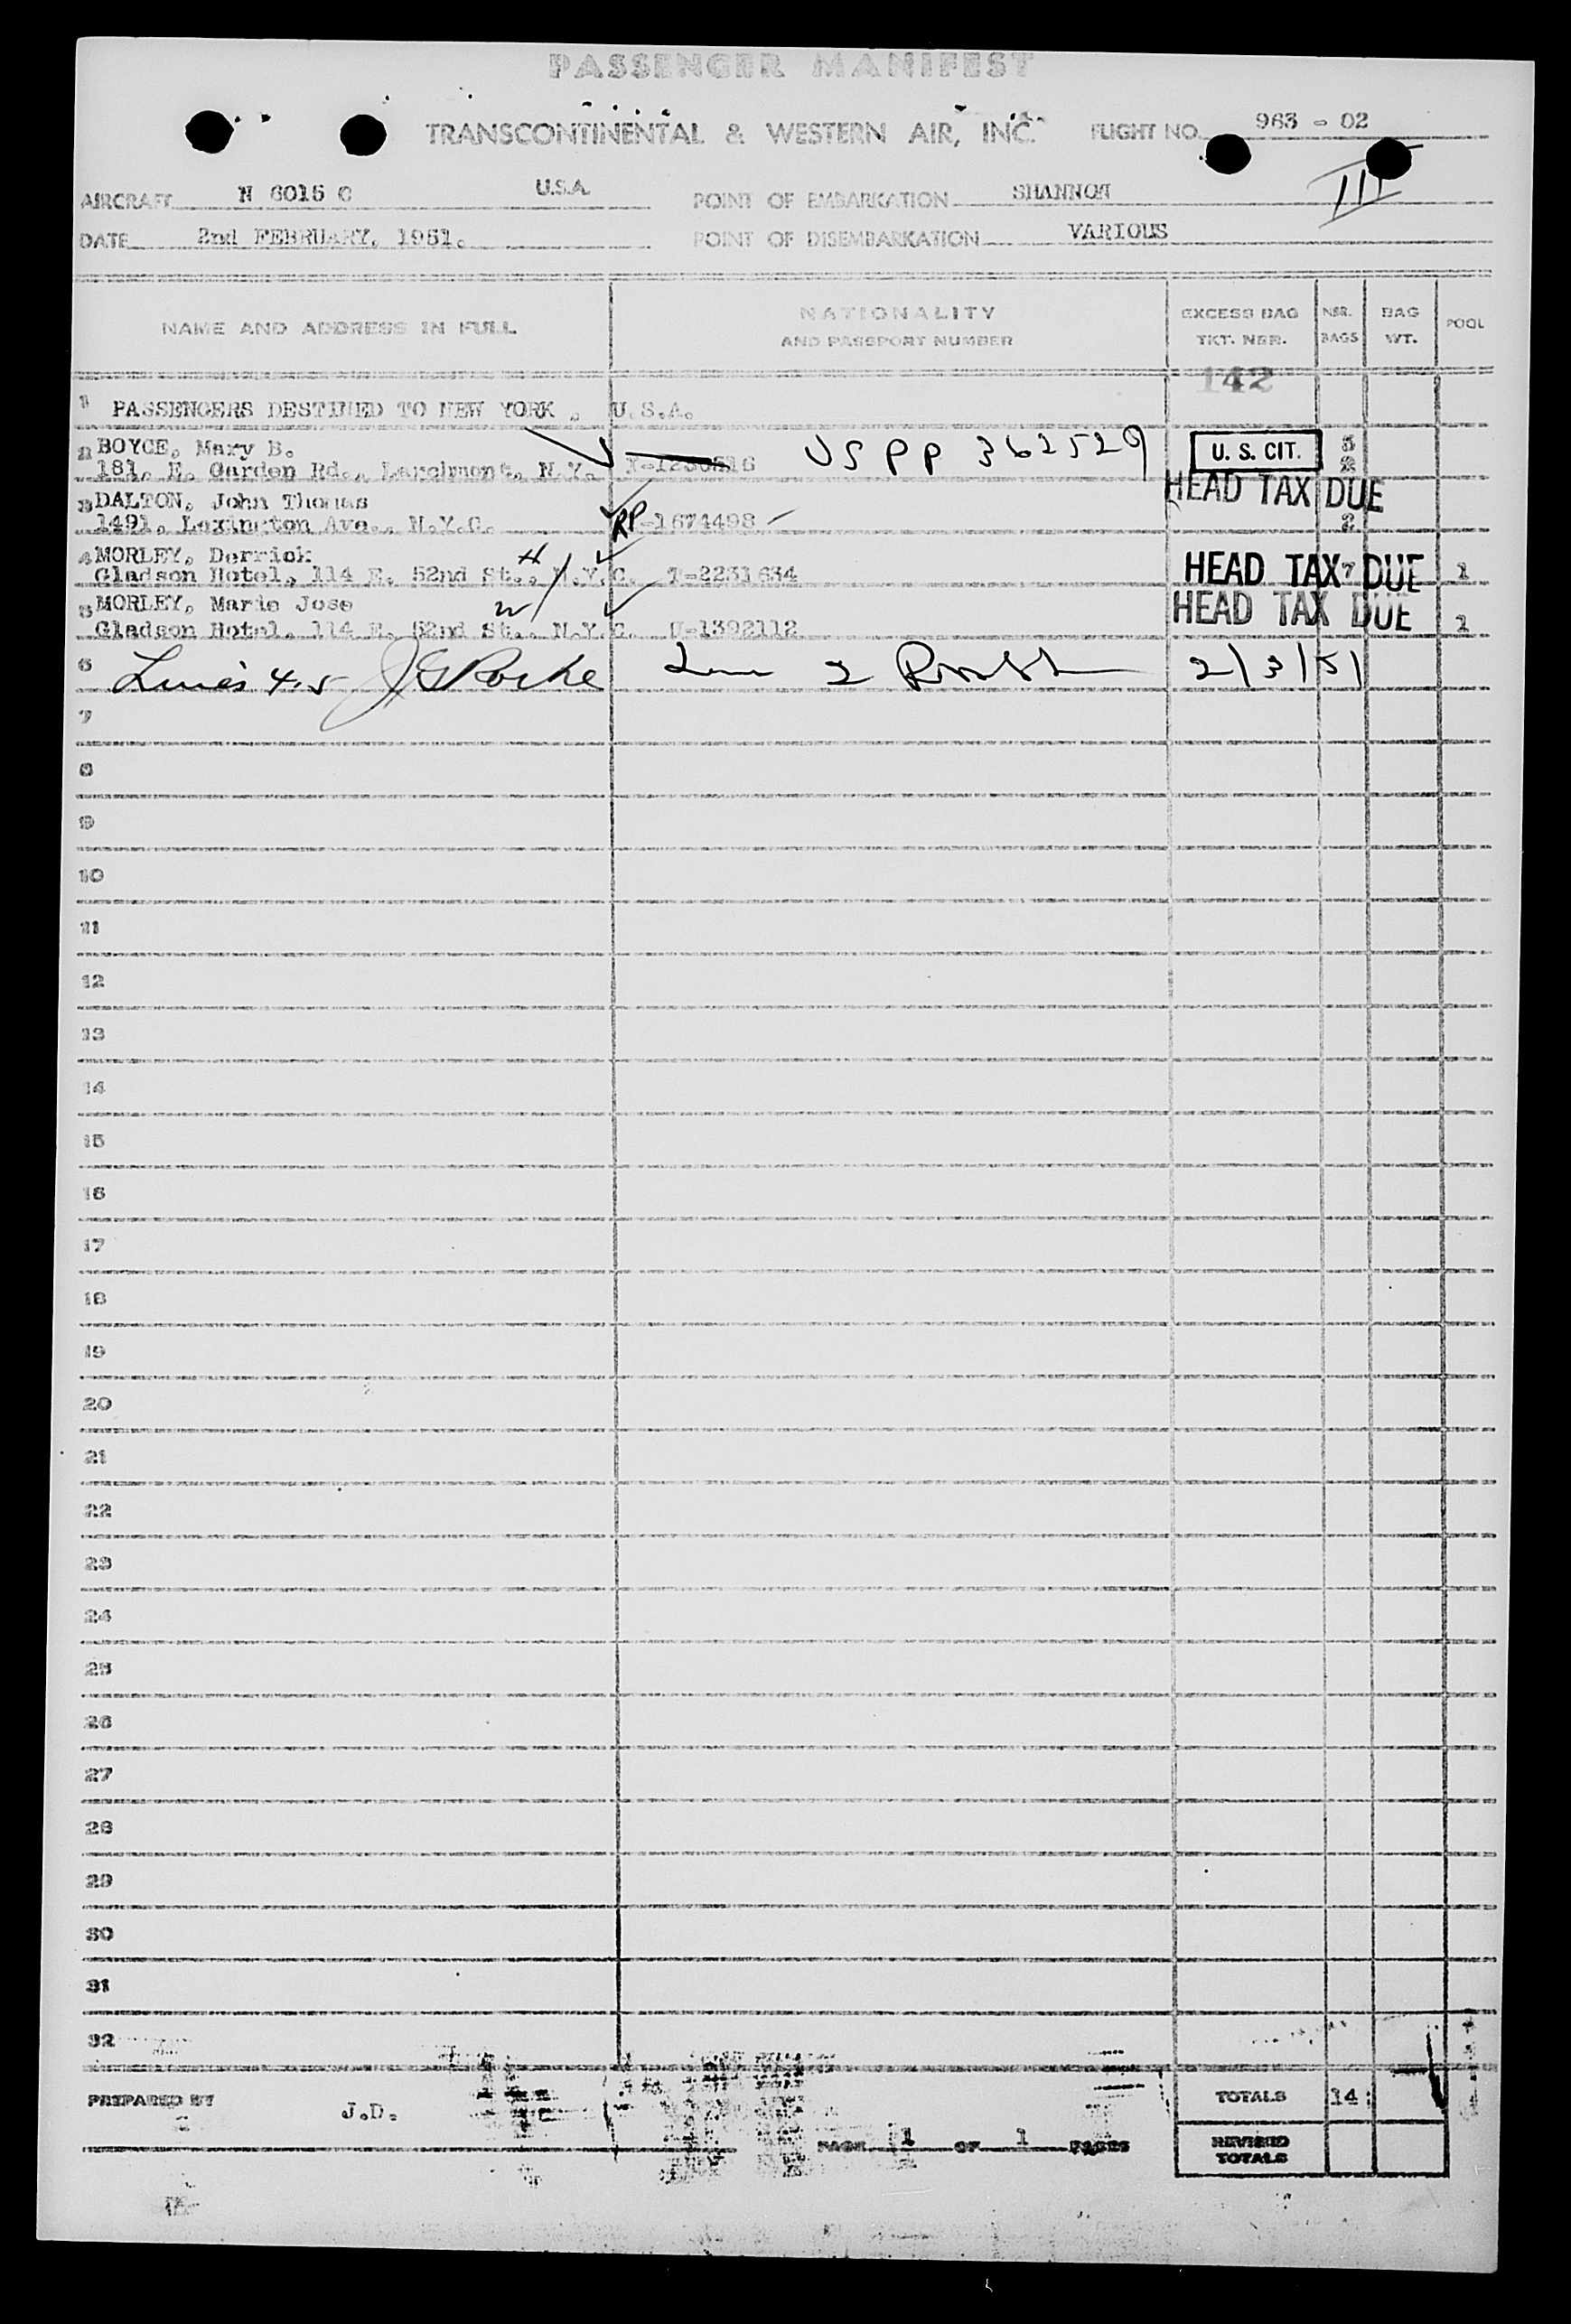 PASSENGER MANIFEST
TRANSCONTINENTAL & WESTERN AIR, INC. FLIGHT NO. 963 - 02
AIRCRAFT N 6015 C U.S.A. POINT OF EMBARKATION SHANNON III
DATE 2nd FEBRUARY, 1951. POINT OF DISEMBARKATION VARIOUS
NAME AND ADDRESS IN FULL NATIONALITY AND PASSPORT NUMBER EXCESS BAG TKT. NBR. NBR. BAGS BAG WT. POOL
142
1 PASSENGERS DESTINED TO NEW YORK, U.S.A.
2 BOYCE, Mary B. US PP 362529 U. S. CIT. 5
181, E. Garden Rd., Larchmont, N.Y. 2
3 DALTON, John Thomas HEAD TAX DUE
1491, Lexington Ave., N.Y.C. RP-1674498 2
4 MORLEY, Derrick H HEAD TAX DUE 7
Gladson Hotel, 114 E. 52nd St., N.Y.C. T-2231634 1
5 MORLEY, Marie Jose W HEAD TAX DUE
Gladson Hotel, 114 E. 52nd St., N.Y.C. U-1392112 1
6 Lines 4.5 2 2/3/51
7
8
9
10
11
12
13
14
15
16
17
18
19
20
21
22
23
24
25
26
27
28
29
30
31
32
PREPARED BY J.D. TOTALS 14
PAGE 1 OF 1 PAGES REVISED TOTALS